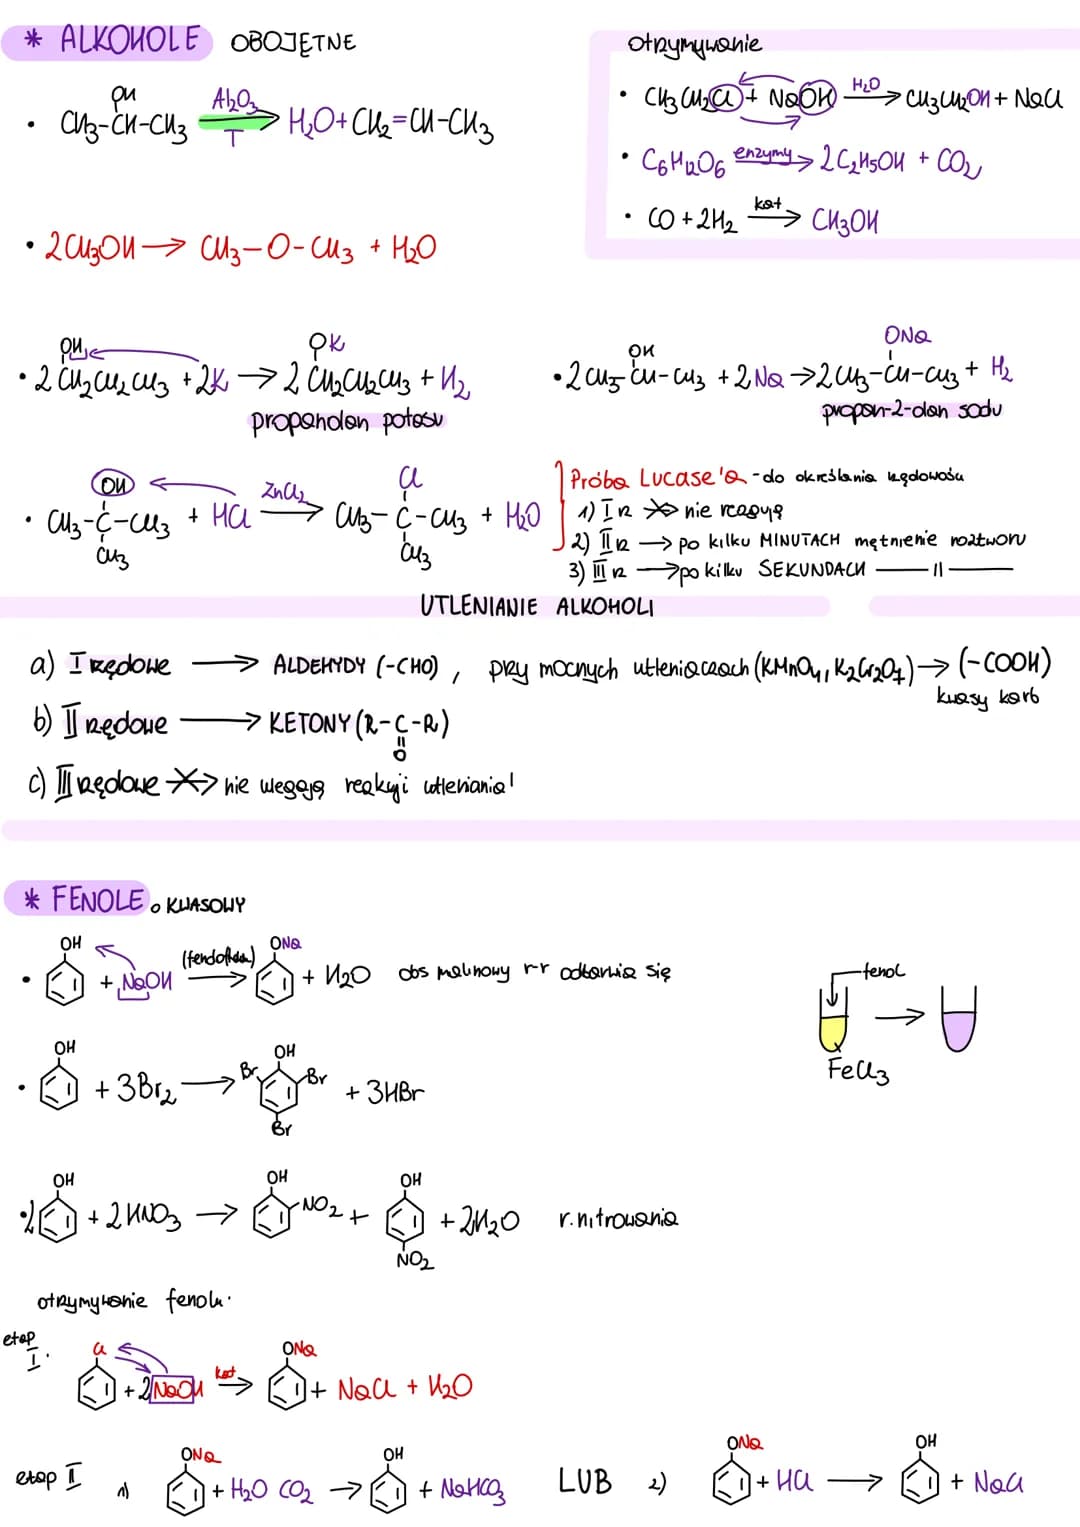 * ALKOHOLE OBOJĘTNE
OH
• CH3-CH-CH3 Al2O3 T → H2O + CH2=CH-CH3
• 2CH3OH → CH3-O-CH3 + H2O
otrzymywanie
• CH3CH2Cl + NaOH H2O → CH3CH2OH + NaCl
• C6H12O6 enzymy → 2C2H5OH + CO2
• CO + 2H2 kat → CH3OH
OH OK
• 2CH2CH2CH3 + 2K → 2CH2CH2CH3 + H2
propanolan potasu
OH ONa
• 2CH3-CH-CH3 + 2Na → 2CH3-CH-CH3 + H2
propan-2-olan sodu
OH Cl
• CH3-C-CH3 + HCl ZnCl2 → CH3-C-CH3 + H2O
CH3 CH3
Próba Lucase'a - do określania rzędowości
1) I rz nie reagują
2) II rz → po kilku MINUTACH mętnienie roztworu
3) III rz → po kilku SEKUNDACH —— 11 ——
UTLENIANIE ALKOHOLI
a) I rzędowe → ALDEHYDY (-CHO), przy mocnych utleniaczach (KMnO4, K2Cr2O7) → (-COOH)
kwasy karb
b) II rzędowe → KETONY (R-C-R)
O
c) III rzędowe nie ulegają reakcji utleniania!
* FENOLE o KWASOWY
OH (fenoloftal.) ONa
• + NaOH → + H2O obs malinowy r-r odbarwia się
fenol
FeCl3
OH OH
• + 3Br2 → Br Br + 3HBr
Br
OH OH OH
• 2 + 2HNO3 → NO2 + + 2H2O r. nitrowania
NO2
otrzymywanie fenolu.
etap I.
Cl ONa
+ 2NaOH kat → + NaCl + H2O
etap II
ONa OH
1) + H2O CO2 → + NaHCO3
LUB
ONa OH
2) + HCl → + NaCl